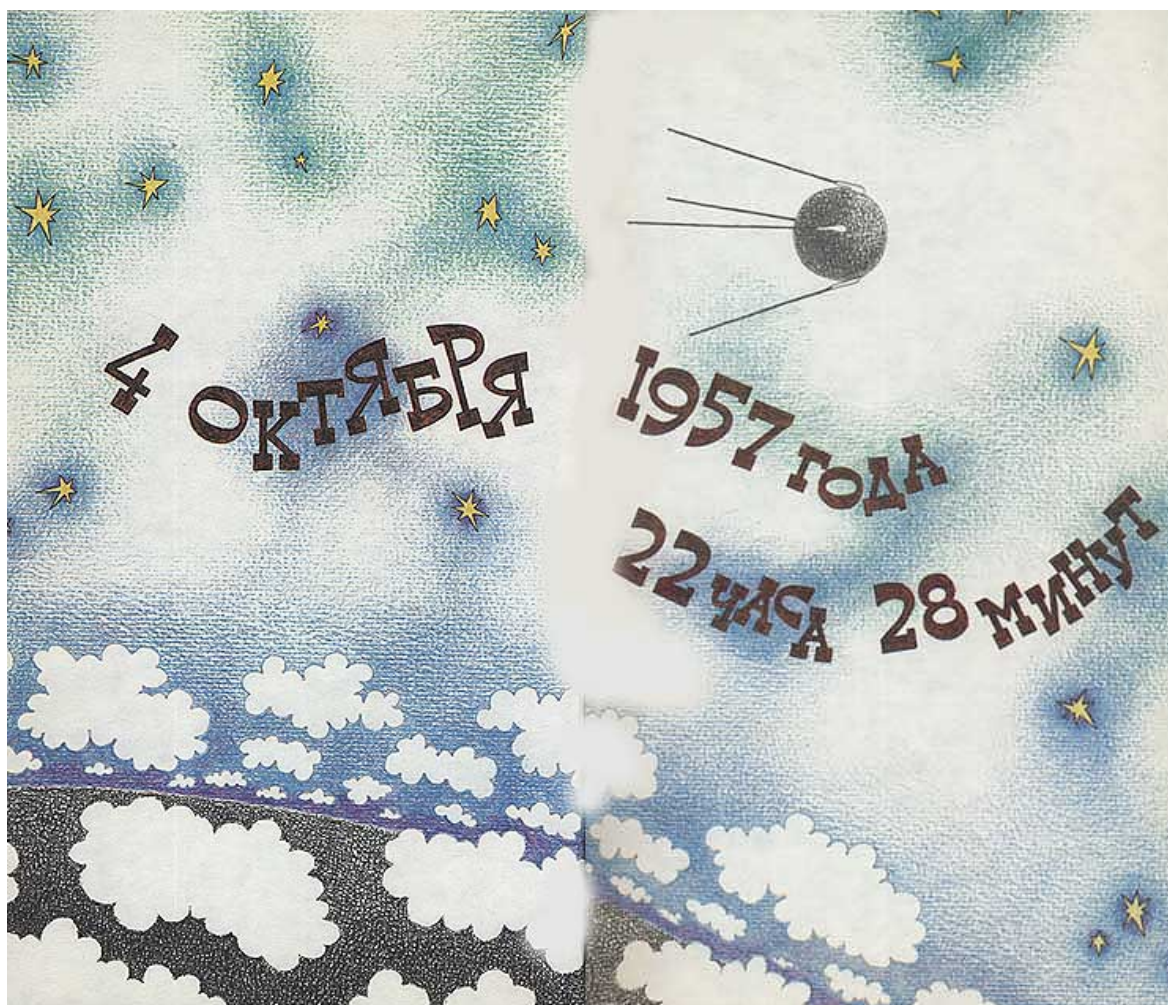 4 ОКТЯБРЯ
1957 ГОДА
22 ЧАСА 28 МИНУТ